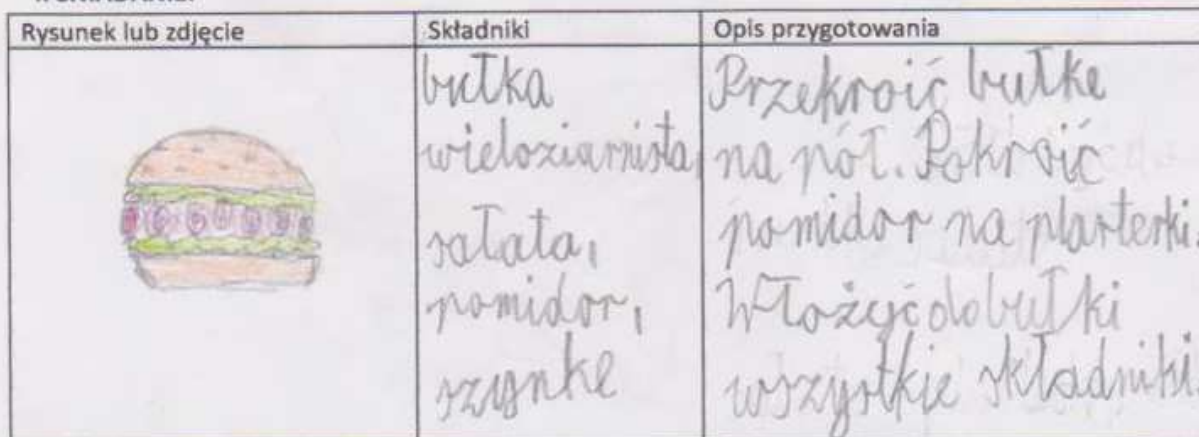 Rysunek lub zdjęcie
Składniki
Opis przygotowania
bułka
wieloziarnista,
sałata,
pomidor,
szynke
Przekroić bułke
na pół. Pokroić
pomidor na plarterki.
Włożyć do bułki
wszystkie składniki